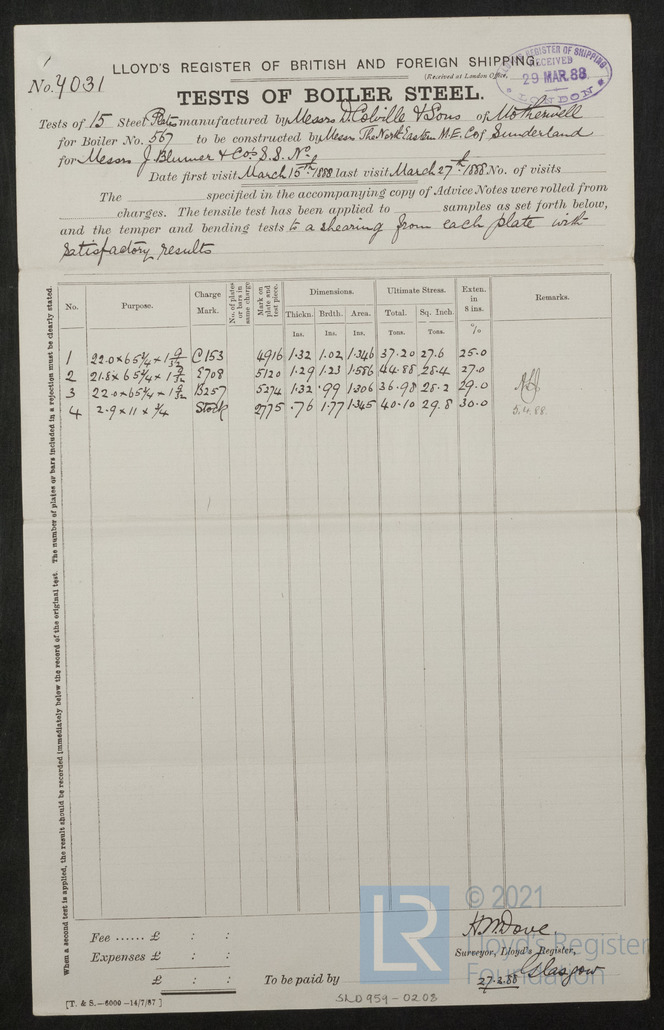 LLOYD'S REGISTER OF BRITISH AND FOREIGN SHIPPING.
No. 4031
(Received at London Office,
LLOYD'S REGISTER OF SHIPPING RECEIVED 29 MAR.88 LONDON
TESTS OF BOILER STEEL.
Tests of 15 Steel Plates manufactured by Messrs D Colville & Sons of Motherwell
for Boiler No. 567 to be constructed by Messrs The North Eastern M.E. Coy Sunderland
for Messrs J. Blumer & Co's S.S. No.
Date first visit March 15th 1888 last visit March 27th 1888 No. of visits
The specified in the accompanying copy of Advice Notes were rolled from
charges. The tensile test has been applied to samples as set forth below,
and the temper and bending tests to a shearing from each plate with
satisfactory results
When a second test is applied, the result should be recorded immediately below the record of the original test. The number of plates or bars included in a rejection must be clearly stated.
No. Purpose. Charge Mark. No. of plates or bars in same charge Mark on plate and test piece. Dimensions. Ultimate Stress. Exten. in 8 ins. Remarks.
Thickn. Brdth. Area. Total. Sq. Inch
Ins. Ins. Ins. Tons. Tons. %
1 22.0 x 65 3/4 x 1 9/32 C153 4916 1.32 1.02 1.346 37.20 27.6 25.0
2 21.8 x 65 3/4 x 1 9/32 E708 5120 1.29 1.23 1.586 44.88 28.4 27.0
3 22.0 x 65 3/4 x 1 9/32 B257 5274 1.32 .99 1.306 36.98 28.2 29.0
4 2.9 x 11 x 3/4 Stock 2775 .76 1.77 1.345 40.10 29.8 30.0
5.4.88.
Fee ...... £ : :
Expenses £ : :
£ : :
To be paid by
H. M. Dove.
Surveyor, Lloyd's Register,
Glasgow
27.3.88
[T. & S.—6000—14/7/87]
SLD959-0208
LR
© 2021
Lloyd's Register
Foundation